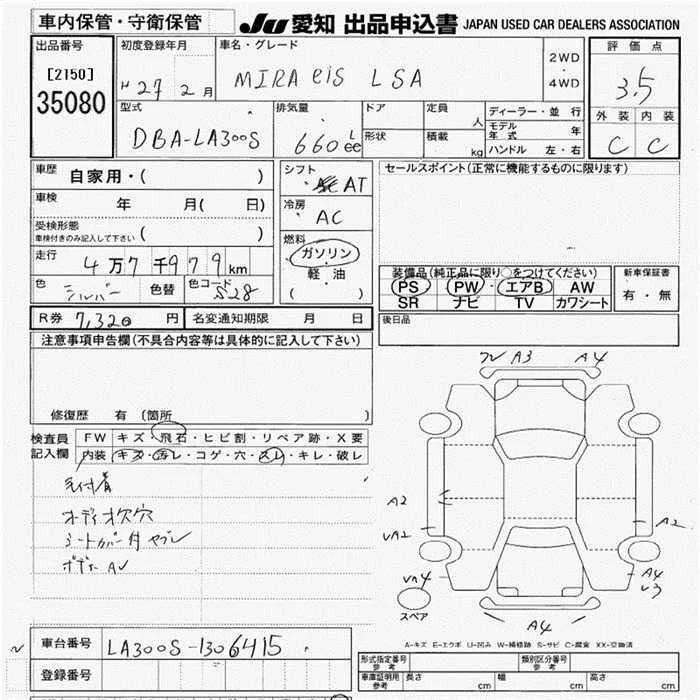 車内保管・守衛保管
JU 愛知 出品申込書 JAPAN USED CAR DEALERS ASSOCIATION
出品番号
[2150]
35080
初度登録年月
H 27 2月
車名・グレード
MIRA eis LSA
2WD
・
4WD
評価点
3.5
外装 内装
C C
型式
DBA-LA300S
排気量
660 L cc
ドア
形状
定員
人
積載
kg
ディーラー・並行
モデル年式 年
ハンドル 左・右
車歴
自家用・( )
車検 年 月( 日)
受検形態
車検付きのみ記入して下さい ( )
走行 4万7千979km
色 シルバー 色替 色コード S28
シフト
AT
冷房
AC
燃料
ガソリン
・
軽・油
( )
セールスポイント(正常に機能するものに限ります)
装備品(純正品に限り○をつけてください)
PS PW・エアB AW
SR ナビ TV カワシート
新車保証書
有・無
R券 7,320円 名変通知期限 月 日
後日品
注意事項申告欄(不具合内容等は具体的に記入して下さい)
修復歴 有 (箇所 )
検査員記入欄
FW キズ・飛石・ヒビ割・リペア跡・X要
内装 キズ・汚レ・コゲ・穴・スレ・キレ・破レ
毛付着
オーディオ欠穴
シートカバー付ヤブレ
ボデー AU
A3 A4
A2
UA2
A2
A4
U3
A4
スペア
A-キズ E-エクボ U-凹み W-補修跡 S-サビ C-腐食 XX-交換済
車台番号 LA300S-1306415
登録番号
形式指定番号 参考
類別区分番号 参考
車庫証明用 参考 長さ cm 幅 cm 高さ cm